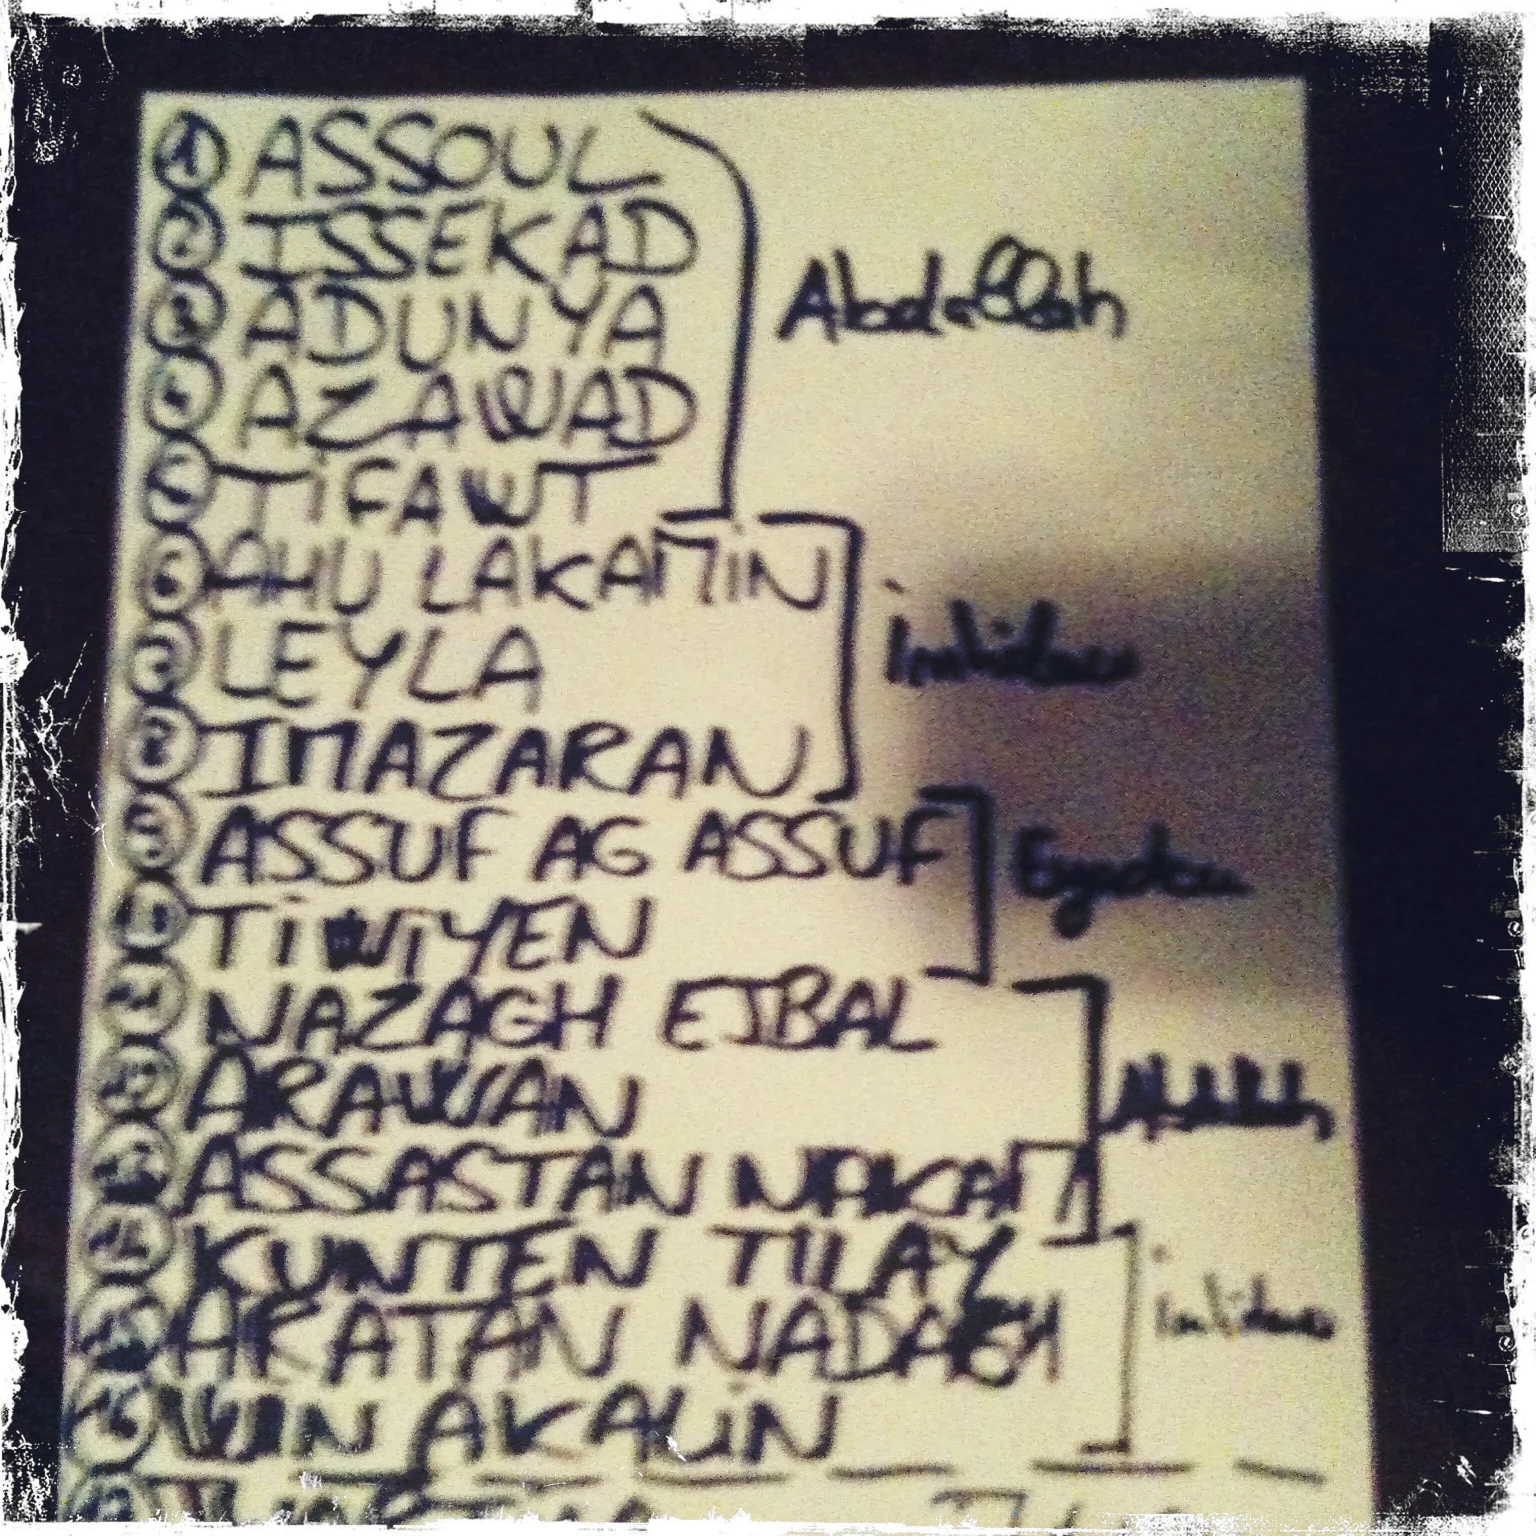 1 ASSOUL
2 ISSEKAD
3 ADUNYA
4 AZAWAD
Abdallah
5 TiFAWT
6 AHU LAKAMiN
7 LEYLA
8 IMAZARAN
9 ASSUF AG ASSUF
Eyadou
10 TiWiYEN
11 NAZAGH EJBAL
12 ARAWAN
Abdallah
13 ASSASTAN NAKAM
14 KUNTEN TILAY
15 AKATAN NADAGH
16 WIN AKALiN